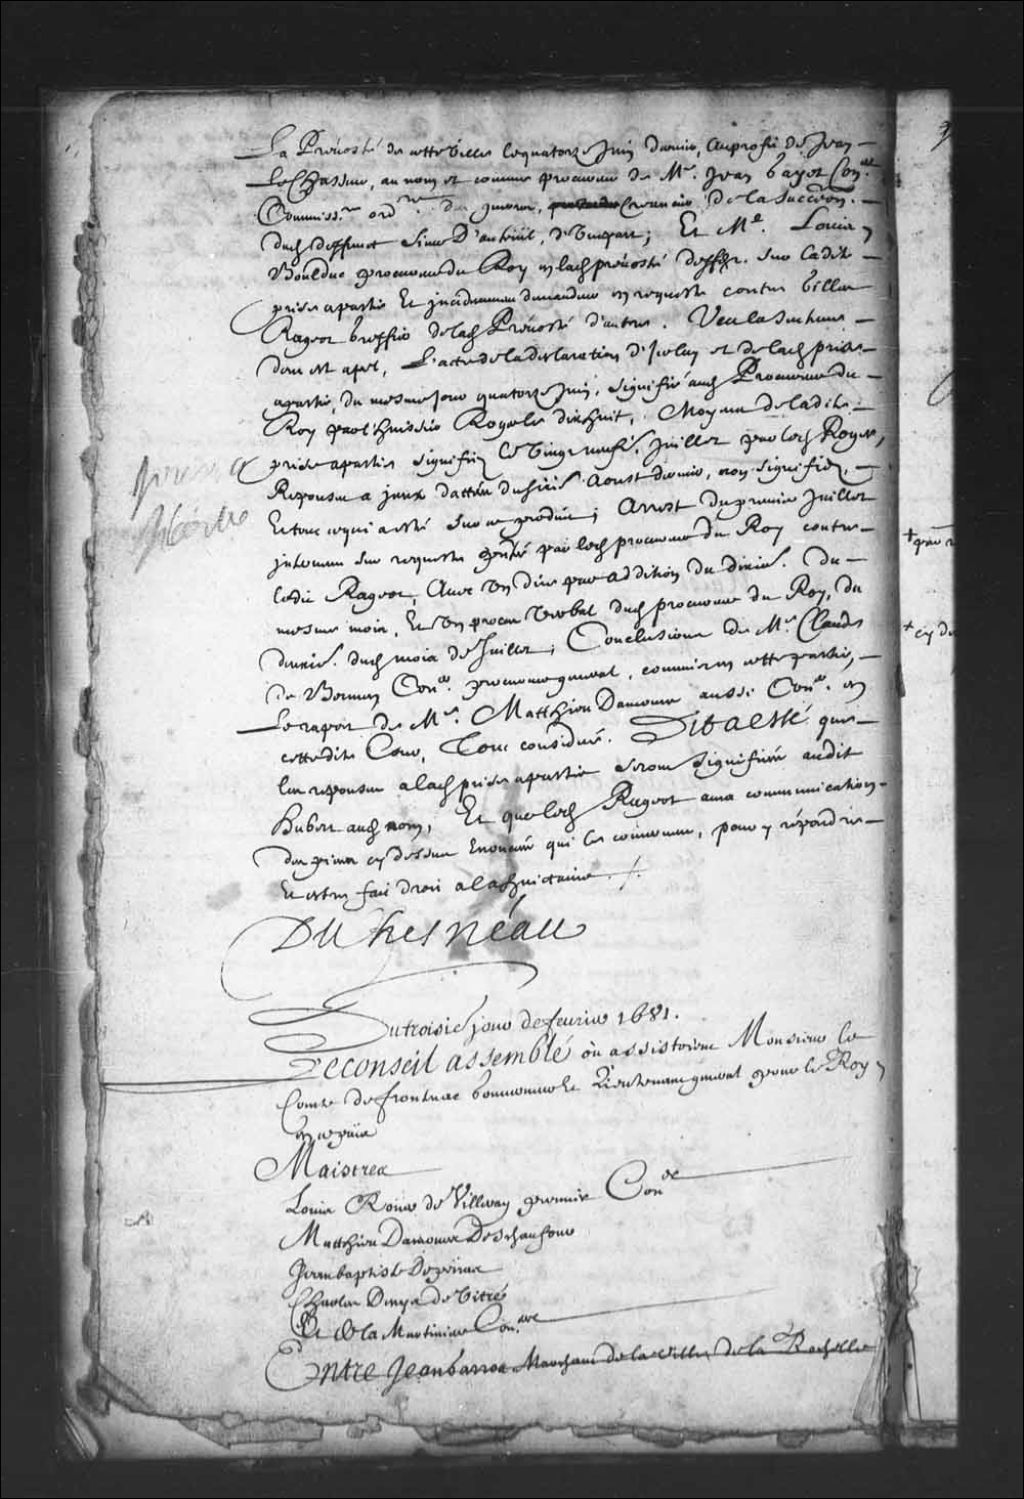 La Prevosté de cette Ville le quatorze Juin dernier, au profit de Jean
Le Chasseur, au nom et comme procureur de Me. Jean bayot Conr.
Commissre. ordre. des guerres, creancier de la succeson.
dud deffunct Sieur D'auteüil, d'Une part; Et Me. Louis
Boulduc procureur du Roy en lad prévosté deffr. sur ladite
prise a partie Et incidemment demandeur en requeste contre Gilles
Rageot Greffier de lad Prévosté d'autre. Veu la Sentence
dont est apel, L'acte de la declaration d'Iceluy et de lad prise
apartie, du mesme jour quatorze Juin, signifié aud Procureur du
Roy par l'huissier Roger le dixhuit, Moyens de ladite
prise apartie signifiez le Vingt neufe. Juillet par led Roger,
Reponses a iceux dattées du sixie. Aoust dernier, non signifiées,
Et tout ce qui a esté sur ce produit; Arrest du premier Juillet
intervenu sur requeste pntée par led procureur du Roy contre
ledit Rageot, Avec Un dire par addition du dixie. du
mesme mois, Et Un procez Verbal dud procureur du Roy, du
dernie. dud mois de Juillet; Conclusions de Me. Claude
de Bermen Conr. procureur general, commis en cette partie,
Le raport de Me. Matthieu Damours aussi Conr. en
cette dite Cour, Tout consideré. Dit a esté que
les reponses a lad prise apartie seront signifiées audit
hubert aud nom, Et que led Rageot aura communication
des pieces cy dessus Enoncées qui les concernent, pour y répondre
Et estre fait droit a la huictaine ./.
DuChesneau
Du troisie jour de feurier 1681.
Le conseil assemblé où assistoient Monsieur le
Comte de frontenac Gouverneur Et Lieutenant general pour le Roy
en ce païs
Maistres
Louis Roüer de Villeray premier Coner
Matthieu Damours Deschaufour
Jean baptiste Depeiras
Charles Denys de Vitré
Et De la Martiniere Coners
Entre Jean Garros Marchand de la Ville de la Rochelle